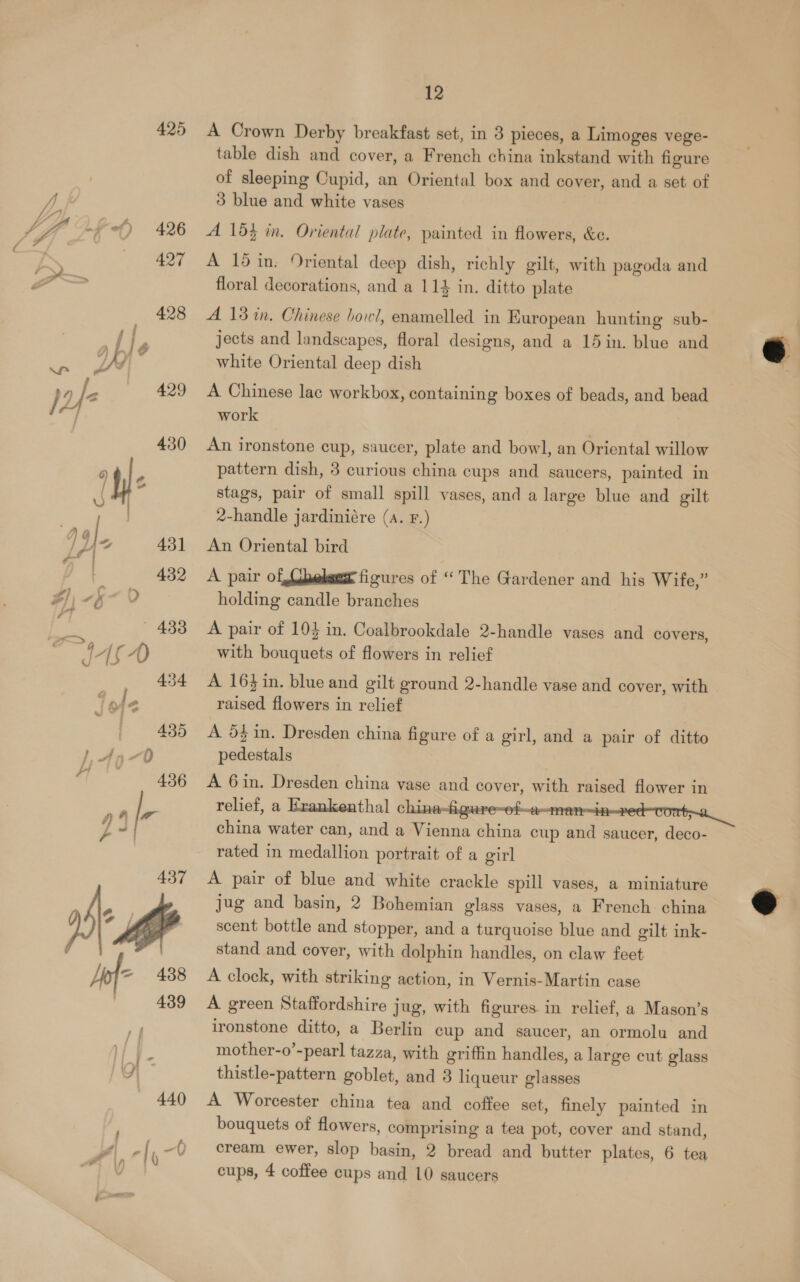 12
425 A Crown Derby breakfast set, in 3 pieces, a Limoges vege-
table dish and cover, a French china inkstand with figure
of sleeping Cupid, an Oriental box and cover, and a set of
3 blue and white vases
426 A 15½ in. Oriental plate, painted in flowers, &c.
427 A 15 in. Oriental deep dish, richly gilt, with pagoda and
floral decorations, and a 11½ in. ditto plate
428 A 13 in. Chinese bowl, enamelled in European hunting sub-
jects and landscapes, floral designs, and a 15 in. blue and
white Oriental deep dish
429 A Chinese lac workbox, containing boxes of beads, and bead
work
430 An ironstone cup, saucer, plate and bowl, an Oriental willow
pattern dish, 3 curious china cups and saucers, painted in
stags, pair of small spill vases, and a large blue and gilt
2-handle jardiniére (A. F.)
431 An Oriental bird
432 A pair of Chelsea figures of “ The Gardener and his Wife,”
holding candle branches
433 A pair of 10½ in. Coalbrookdale 2-handle vases and covers,
with bouquets of flowers in relief
434 A 16½ in. blue and gilt ground 2-handle vase and cover, with
raised flowers in relief
435 A 5½ in. Dresden china figure of a girl, and a pair of ditto
pedestals
436 A 6 in. Dresden china vase and cover, with raised flower in
relief, a Frankenthal china figure of a man in red coat, a
china water can, and a Vienna china cup and saucer, deco-
rated in medallion portrait of a girl
437 A pair of blue and white crackle spill vases, a miniature
jug and basin, 2 Bohemian glass vases, a French china
scent bottle and stopper, and a turquoise blue and gilt ink-
stand and cover, with dolphin handles, on claw feet
438 A clock, with striking action, in Vernis-Martin case
439 A green Staffordshire jug, with figures in relief, a Mason’s
ironstone ditto, a Berlin cup and saucer, an ormolu and
mother-o’-pearl tazza, with griffin handles, a large cut glass
thistle-pattern goblet, and 3 liqueur glasses
440 A Worcester china tea and coffee set, finely painted in
bouquets of flowers, comprising a tea pot, cover and stand,
cream ewer, slop basin, 2 bread and butter plates, 6 tea
cups, 4 coffee cups and 10 saucers